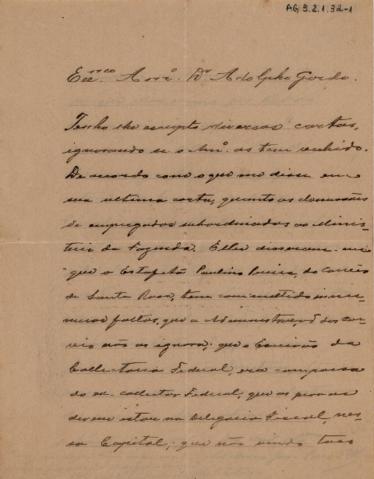 AG 3.2.1.32-1
Exmo. Amo. Dr. Adolpho Gordo.
Tenho lhe escripto diversas cartas,
ignorando se o Amo. as tem recebido.
De accordo com o que me disse em
sua ultima carta, quanto as demissões
de empregados subordinados ao Minis-
terio da Fazenda. Elles disseram-me
que o Estafeta Paulino, do correio
de Santa Rosa, tem commettido innu-
meras faltas, que a Administração dos cor-
reios não as ignora; que o Escrivão da
Collectoria Federal,
do ex collector Federal, que as provas
devem estar na Delegacia Fiscal, nes-
sa Capital; que não vindo